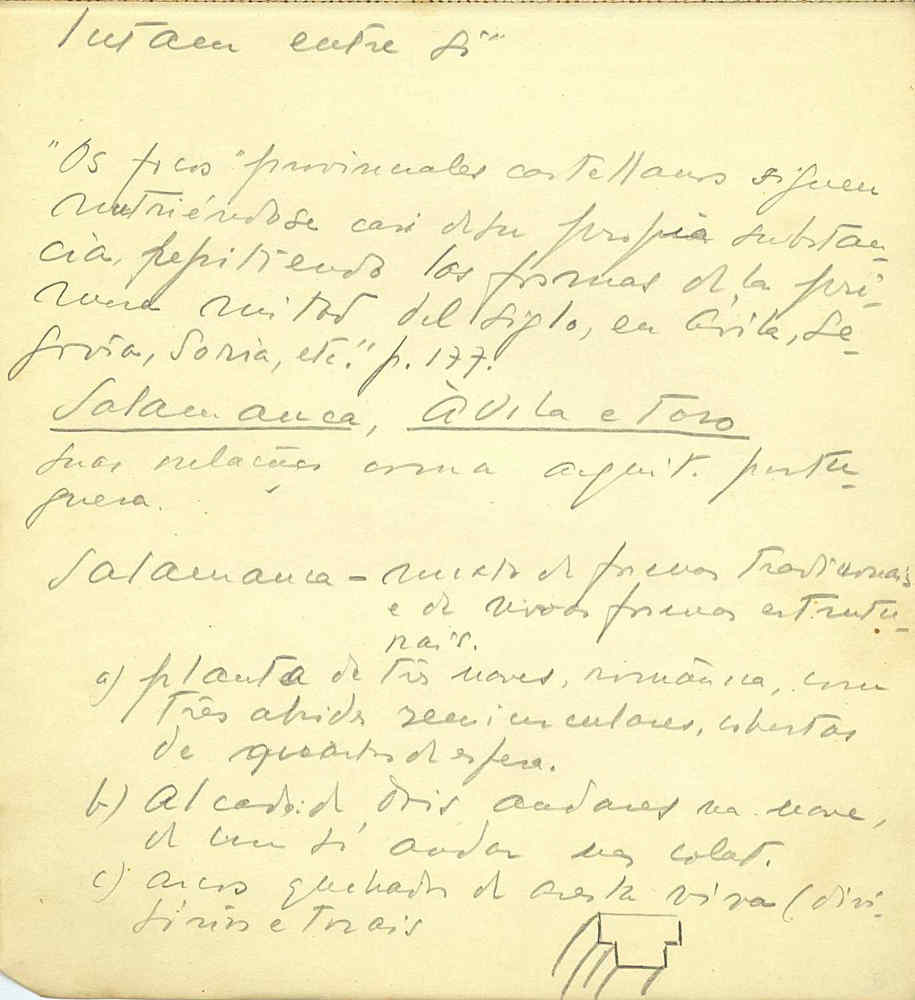 lutam entre si"
"Os focos "provinciales castellanos siguen
nutriéndose casi de su propia substan-
cia, repitiendo las formas de la pri-
mera mitad del siglo, en Ávila, Se-
govia, Soria, etc." p. 177.
Salamanca, Àvila e Toro
suas relações com a arquit. portu-
guesa.
Salamanca - mixto de formas tradicionais
e de novas formas estrutu-
rais.
a) planta de três naves, românica, com
três absides semicirculares, cobertas
de quartos de esfera.
b) Alcado: de dois andares na nave,
de um só andar nas colat.
c) arcos quebrados de aresta viva (divi-
sórios e torais